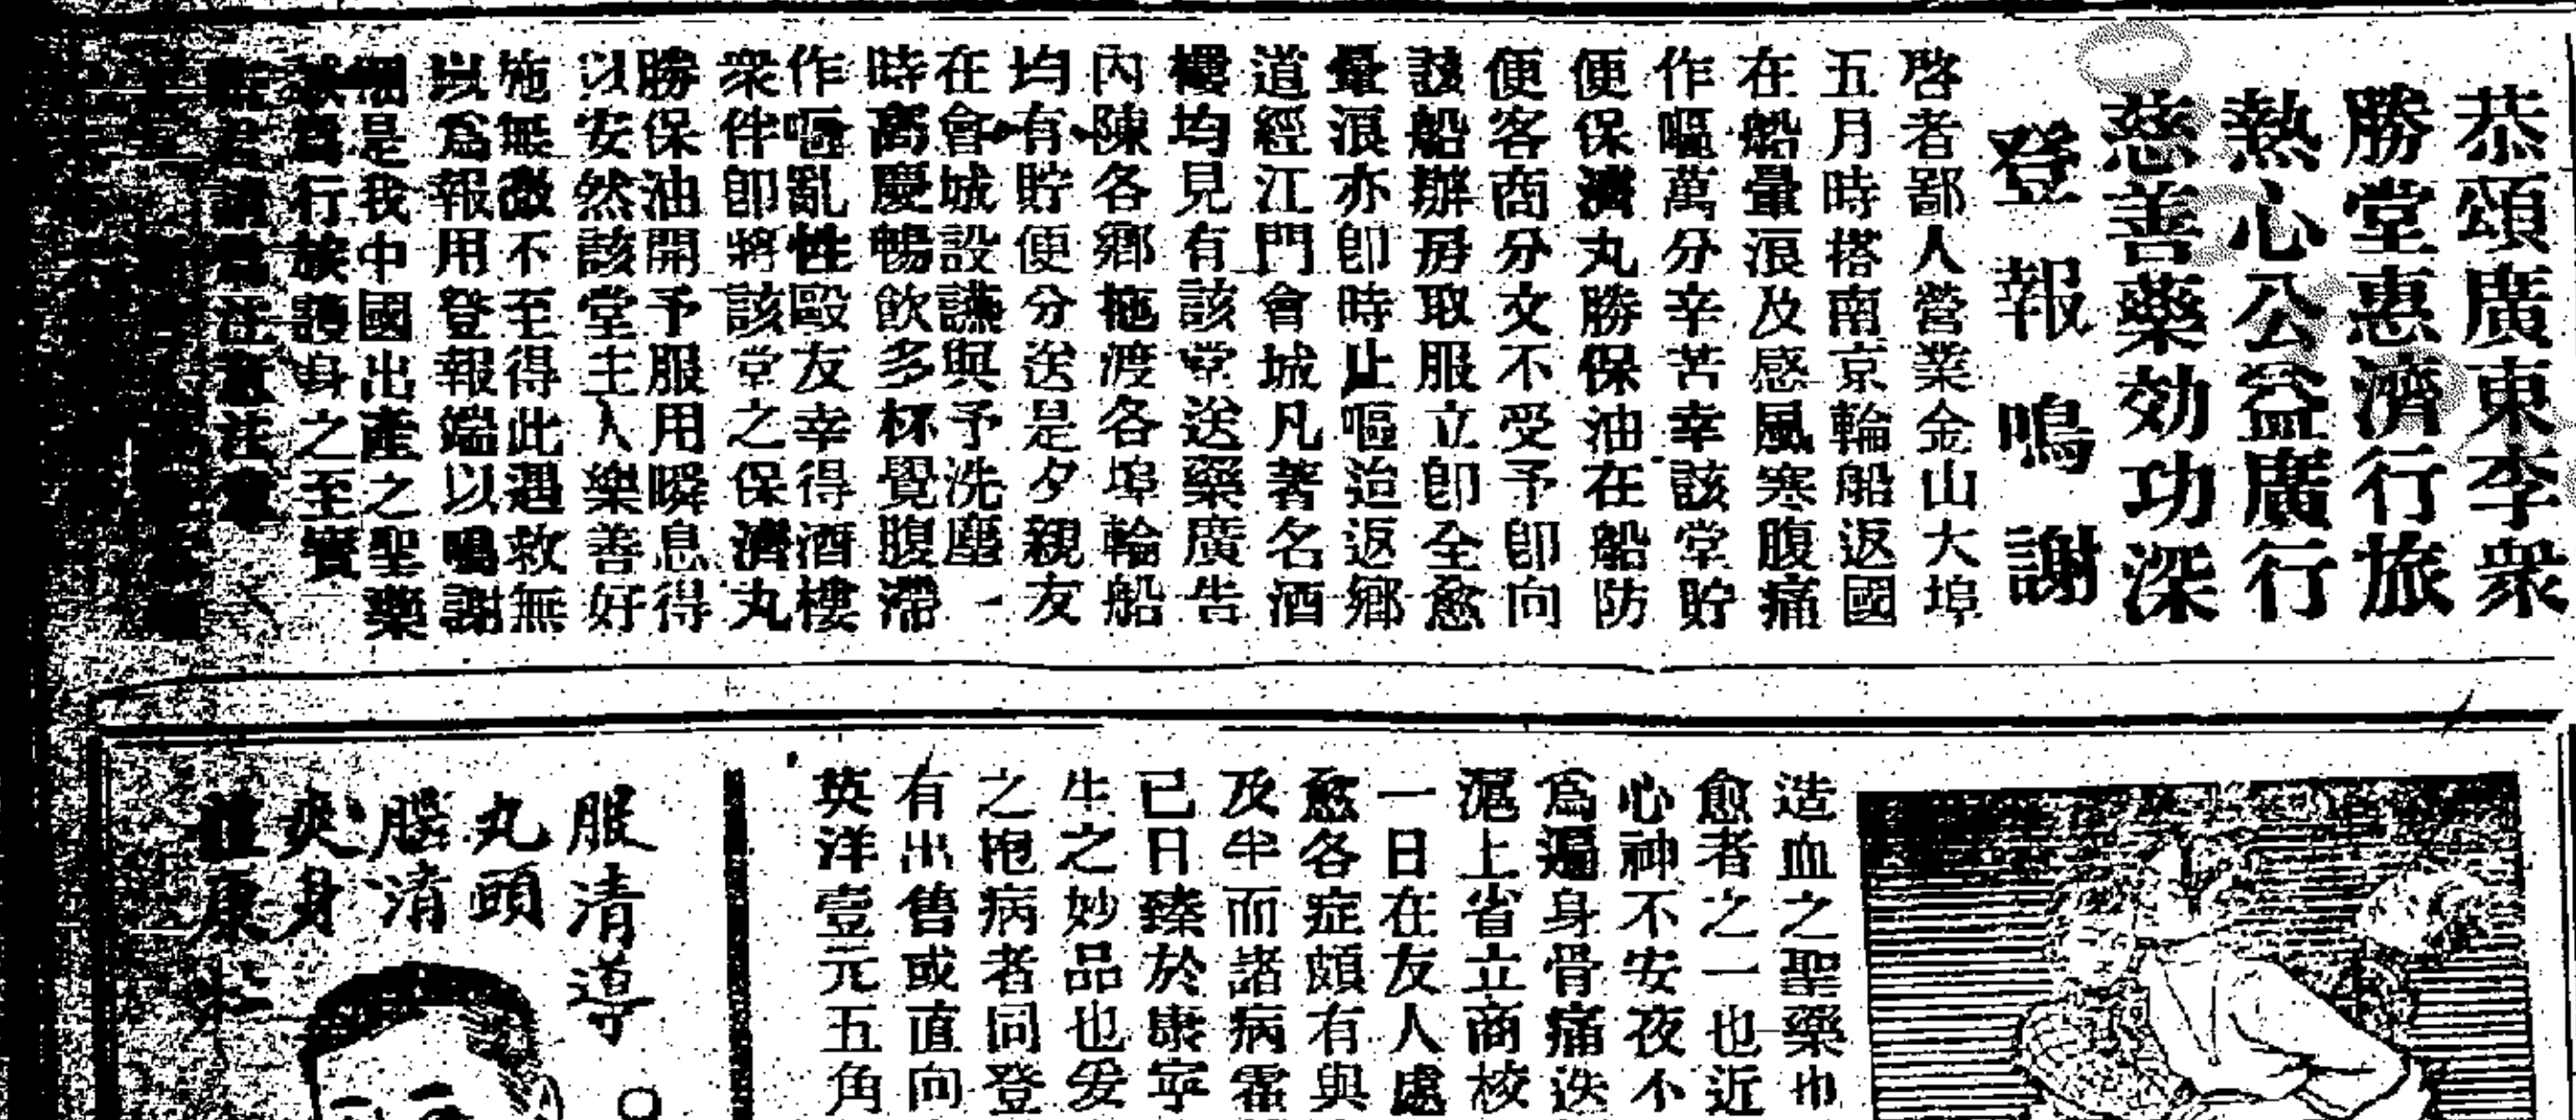 恭頌廣東李衆
勝堂惠濟行旅
熱心公益廣行
慈善藥効功深
登報鳴謝
啓者鄙人營業金山大埠
五月時搭南京輪船返國
在船暈浪及感風寒腹痛
作嘔萬分辛苦幸該堂貯
便保濟丸勝保油在船防
便客商分文不受予卽向
該船辦房取服立卽全愈
暈浪亦卽時止嘔迨返鄉
道經江門會城凡著名酒
樓均見有該堂送藥廣告
內陳各鄉拖渡各埠輪船
均有貯便分送是夕親友
在會城設讌與予洗塵一
時高慶暢飲多杯覺腹滯
作嘔亂性毆友幸得酒樓
衆伴卽將該堂之保濟丸
勝保油開予服用瞬息得
以安然該堂主人樂善好
施無微不至得此遇救無
以爲報用登報端以鳴謝
是我中國出產之聖藥
行族護身之至寶
造血之聖藥也
愈者之一也近
心神不安夜不
爲遍身骨痛迭
滬上省立商校
一日在友人處
愈各症頗有與
及半而諸病霍
已日臻於康寧
生之妙品也爰
之抱病者同登
有出售或直向
英洋壹元五角
服清導
丸頭
腦清
身
康